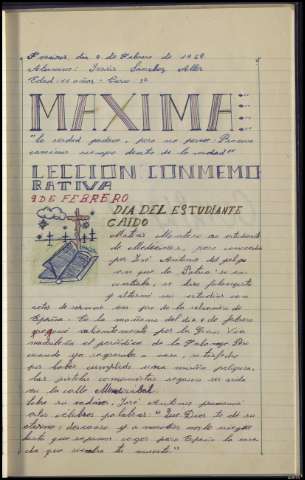 día 9 de Febrero de 1959
Alumno: Jesús Sánchez Aller
Edad: 11 años - Curso: 3º
MAXIMA:
"La verdad padece, pero no perece. Procura
caminar siempre dentro de la verdad"
LECCION CONMEMO
RATIVA
9 DE FEBRERO
DIA DEL ESTUDIANTE
CAIDO
Matías Montero es estudiante
de Medicina, pero convencido
por José Antonio del peligro
en que la Patria se en-
contraba, se hizo falangista
y alternó sus estudios con
actos de servicio en pro de la salvación de
España. En la mañana del día 9 de febrero
pregonó valientemente por la Gran Vía
madrileña el periódico de la Falange. Pero
cuando ya regresaba a casa, satisfecho
por haber cumplido una misión peligrosa,
las pistolas comunistas segaron su vida
en la calle Mendizábal.
Sobre su cadáver, José Antonio pronunció
estas célebres palabras: "Que Dios te dé su
eterno descanso y a nosotros nos lo niegue
hasta que sepamos ganar para España la cose-
cha que siembra tu muerte"